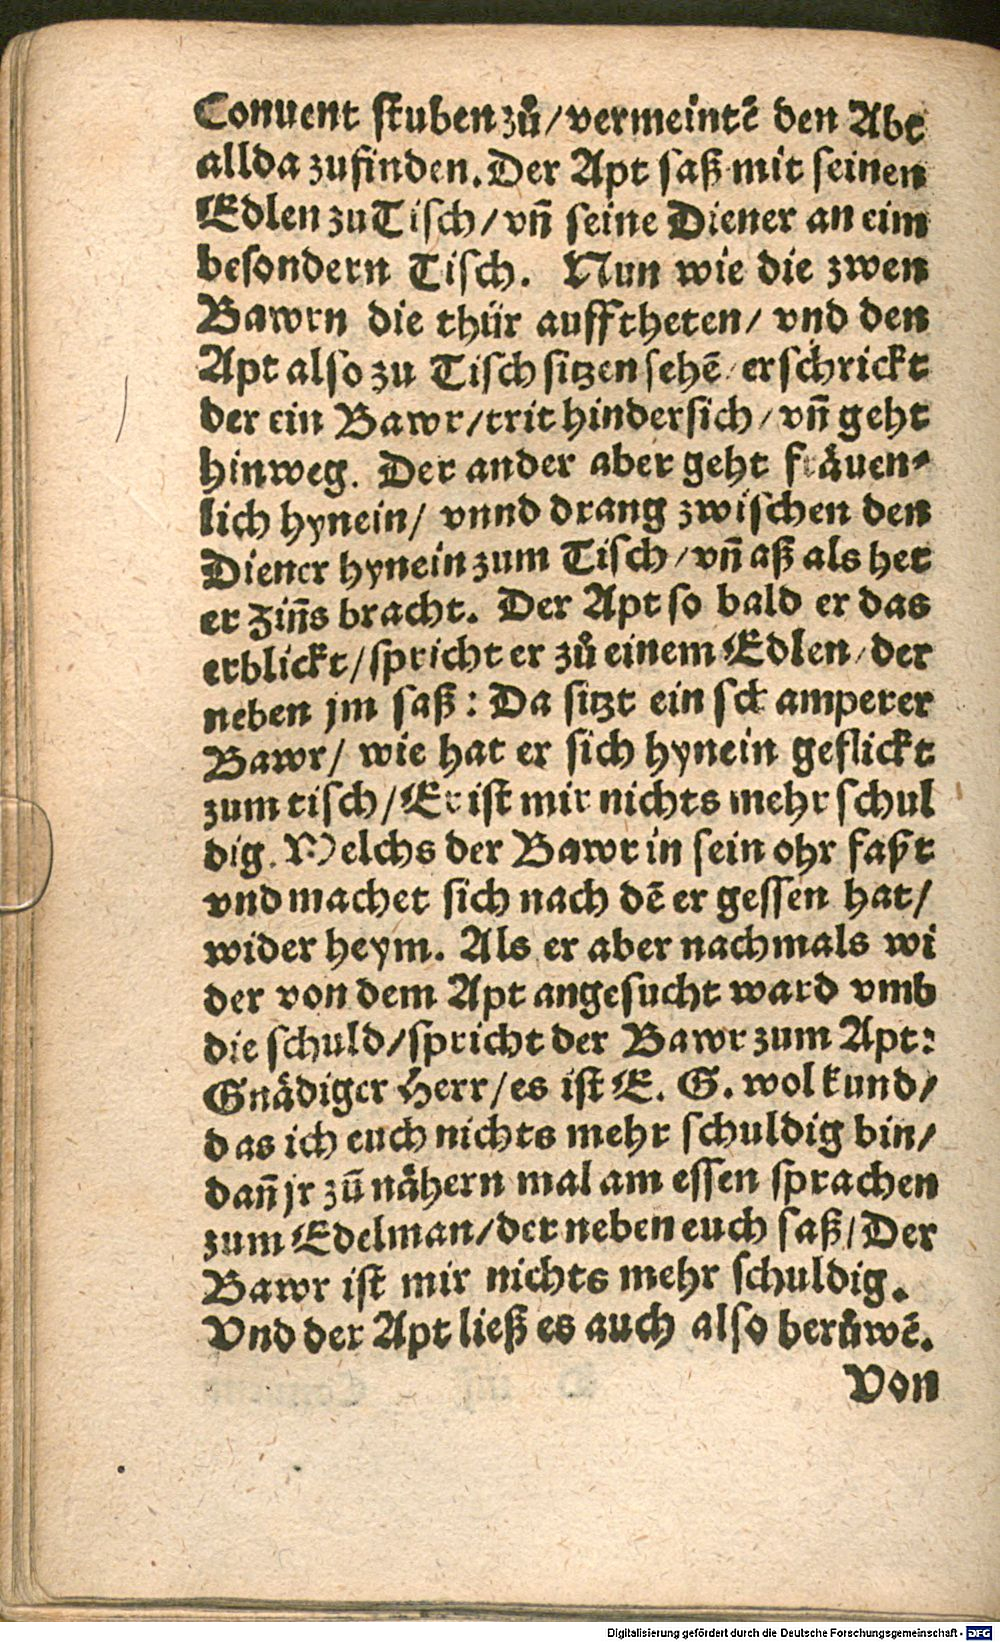 Conuent stuben zů/vermeintē den Abt
allda zufinden. Der Apt saß mit seinen
Edlen zu Tisch/vñ seine Diener an eim
besondern Tisch. Nun wie die zwen
Bawrn die thür auffthet en/ vnd den
Apt also zu Tisch sitzen sehē/erschrickt
der ein Bawr/trit hindersich/vñ geht
hinweg. Der ander aber geht fräuen⸗
lich hynein/ vnnd drang zwischen den
Diener hynein zum Tisch/vñ aß als het
er Ziñs bracht. Der Apt so bald er das
erblickt/spricht er zů einem Edlen/der
neben jm saß: Da sitzt ein schamperer
Bawr/ wie hat er sich hynein geflickt
zum tisch/Er ist mir nichts mehr schul
dig. Welchs der Bawr in sein ohr faßt
vnd machet sich nach dē er gessen hat/
wider heym. Als er aber nachmals wi
der von dem Apt angesucht ward vmb
die schuld/spricht der Bawr zum Apt:
Gnädiger Herr/es ist E. G. wol kund/
das ich euch nichts mehr schuldig bin/
dañ jr zū nähern mal am essen sprachen
zum Edelman/der neben euch saß/Der
Bawr ist mir nichts mehr schuldig.
Vnd der Apt ließ es auch also berůwē.
Von
Digitalisierung gefördert durch die Deutsche Forschungsgemeinschaft - DFG